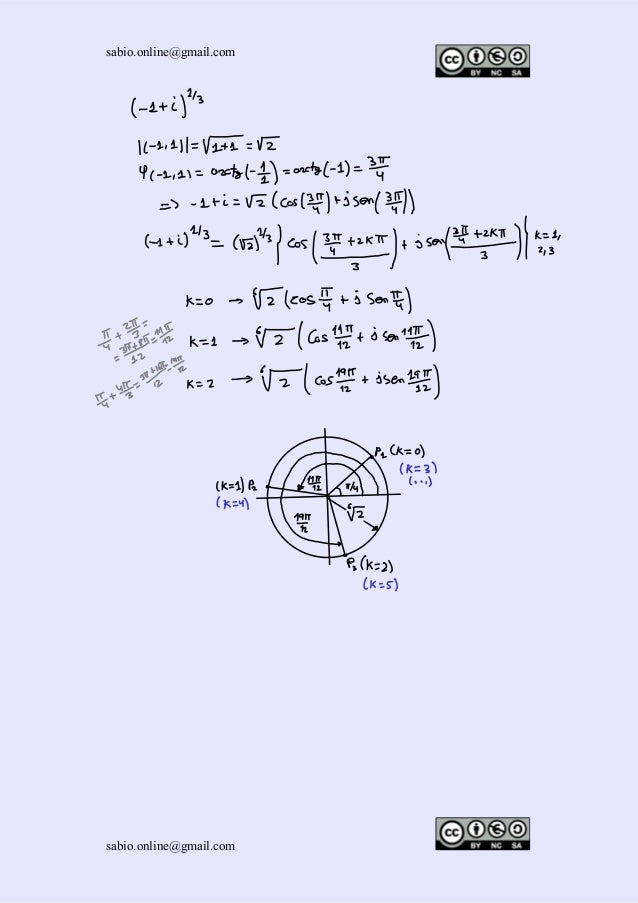 sabio.online@gmail.com
cc BY NC SA
(-1+i)^1/3
|(-1,1)| = √1+1 = √2
φ(-1,1) = arctg(-1/1) = arctg(-1) = 3π/4
=> -1+i = √2 (cos(3π/4) + j sen(3π/4))
(-1+i)^1/3 = (√2)^1/3 { cos( (3π/4 + 2Kπ)/3 ) + j sen( (3π/4 + 2Kπ)/3 ) } K=1, 2, 3
K=0 → ⁶√2 (cos π/4 + j sen π/4)
π/4 + 2π/3 = = 3π+8π/12 = 11π/12
K=1 → ⁶√2 (cos 11π/12 + j sen 11π/12)
π/4 + 4π/3 = 3π+16π/12 = 19π/12
K=2 → ⁶√2 (cos 19π/12 + j sen 19π/12)
P1 (K=0)
(K=3)
(...)
(K=1) P2
(K=4)
11π/12
π/4
19π/12
⁶√2
P3 (K=2)
(K=5)
sabio.online@gmail.com
cc BY NC SA